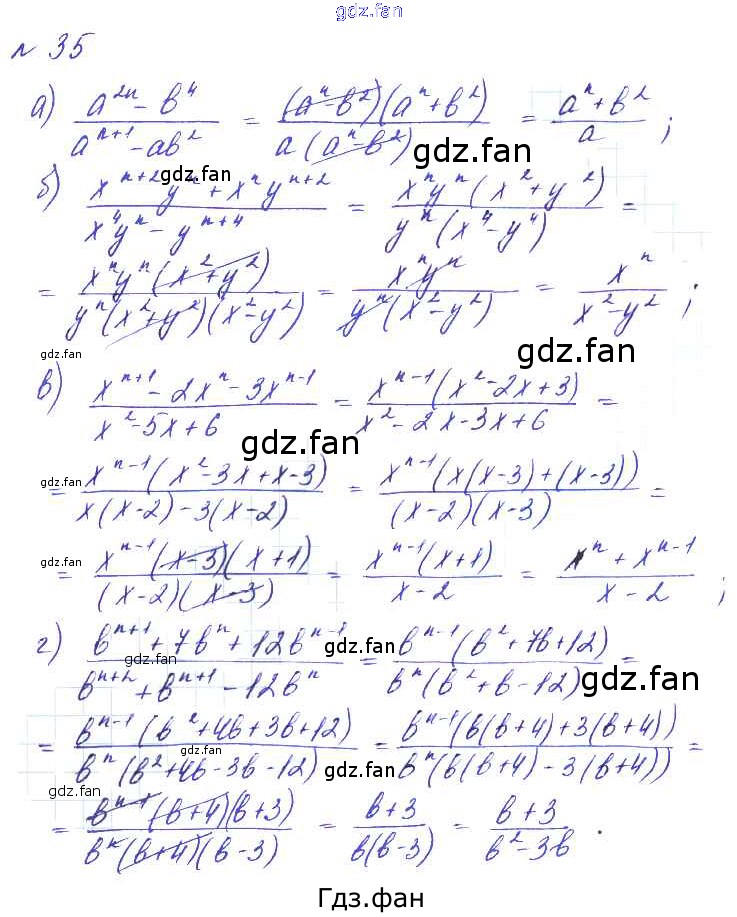 gdz.fan
№ 35
а) (a^(2n) - b^4)/(a^(n+1) - ab^2) = ((a^n - b^2)(a^n + b^2))/(a(a^n - b^2)) = (a^n + b^2)/a ;
gdz.fan
gdz.fan
б) (x^(n+2)y^n + x^n y^(n+2))/(x^4 y^n - y^(n+4)) = (x^n y^n (x^2 + y^2))/(y^n (x^4 - y^4)) =
= (x^n y^n (x^2 + y^2))/(y^n (x^2 + y^2)(x^2 - y^2)) = (x^n y^n)/(y^n (x^2 - y^2)) = x^n/(x^2 - y^2) ;
gdz.fan
gdz.fan
в) (x^(n+1) - 2x^n - 3x^(n-1))/(x^2 - 5x + 6) = (x^(n-1)(x^2 - 2x + 3))/(x^2 - 2x - 3x + 6) =
gdz.fan
= (x^(n-1)(x^2 - 3x + x - 3))/(x(x-2) - 3(x-2)) = (x^(n-1)(x(x-3) + (x-3)))/((x-2)(x-3)) =
gdz.fan
gdz.fan
= (x^(n-1)(x-3)(x+1))/((x-2)(x-3)) = (x^(n-1)(x+1))/(x-2) = (x^n + x^(n-1))/(x-2) ;
г) (b^(n+1) + 7b^n + 12b^(n-1))/(b^(n+2) + b^(n+1) - 12b^n) = (b^(n-1)(b^2 + 7b + 12))/(b^n(b^2 + b - 12)) =
gdz.fan
gdz.fan
= (b^(n-1)(b^2 + 4b + 3b + 12))/(b^n(b^2 + 4b - 3b - 12)) = (b^(n-1)(b(b+4) + 3(b+4)))/(b^n(b(b+4) - 3(b+4))) =
gdz.fan
gdz.fan
gdz.fan
= (b^(n-1)(b+4)(b+3))/(b^n(b+4)(b-3)) = (b+3)/(b(b-3)) = (b+3)/(b^2 - 3b) .
Гдз.фан